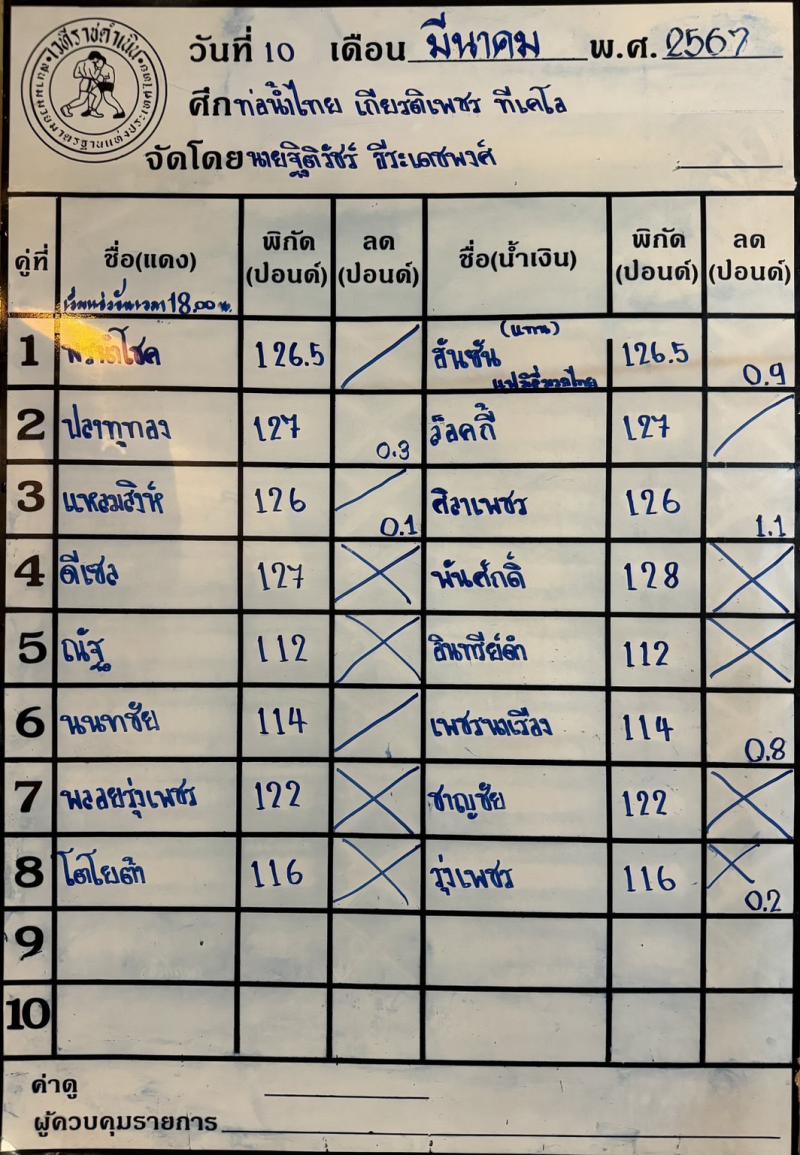 เวทีราชดำเนิน
สนามมวยมาตรฐานแห่งประเทศไทย
วันที่ 10 เดือน มีนาคม พ.ศ. 2567
ศึกท่อน้ำไทย เกียรติเพชร ทีเคโอ
จัดโดย นายฐิติรัชร์ ธีระเดชพงศ์
คู่ที่ ชื่อ(แดง) พิกัด (ปอนด์) ลด (ปอนด์) ชื่อ(น้ำเงิน) พิกัด (ปอนด์) ลด (ปอนด์)
เริ่มแข่งขันเวลา 18.00 น.
1 126.5 สันชัน (แทน) แปดริ้วมวยไทย 126.5 0.9
2 ปลาทูทอง 127 0.3 ร็อคกี้ 127
3 แหลมสิงห์ 126 0.1 ศิลาเพชร 126 1.1
4 ดีเซล 127 พันศักดิ์ 128
5 ณัฐ 112 อินทรีย์ดำ 112
6 นนทชัย 114 เพชรนาเรือง 114 0.8
7 พลอยรุ่งเพชร 122 ชาญชัย 122
8 โตโยต้า 116 รุ่งเพชร 116 0.2
9
10
ค่าดู
ผู้ควบคุมรายการ